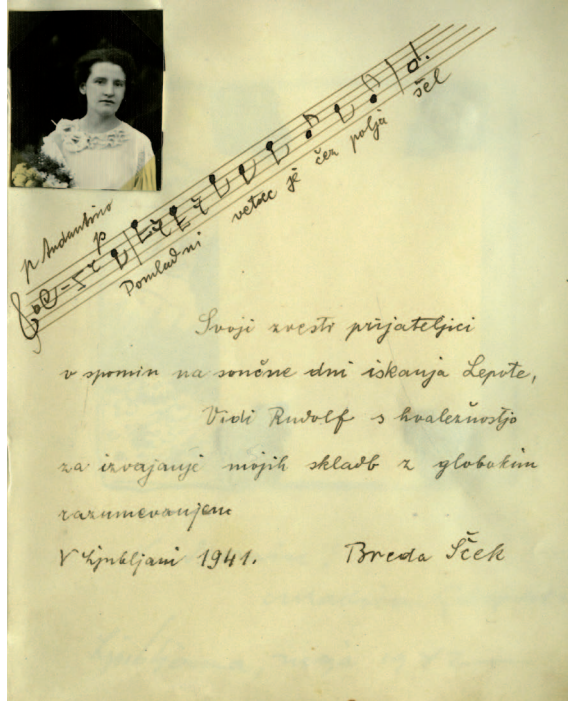 p Andantino
p
Pomladni vetrc je čez polja šel
Svoji zvesti prijateljici
v spomin na sončne dni iskanja Lepote,
Vidi Rudolf s hvaležnostjo
za izvajanje mojih skladb z globokim
razumevanjem
V Ljubljani 1941. Breda Šček